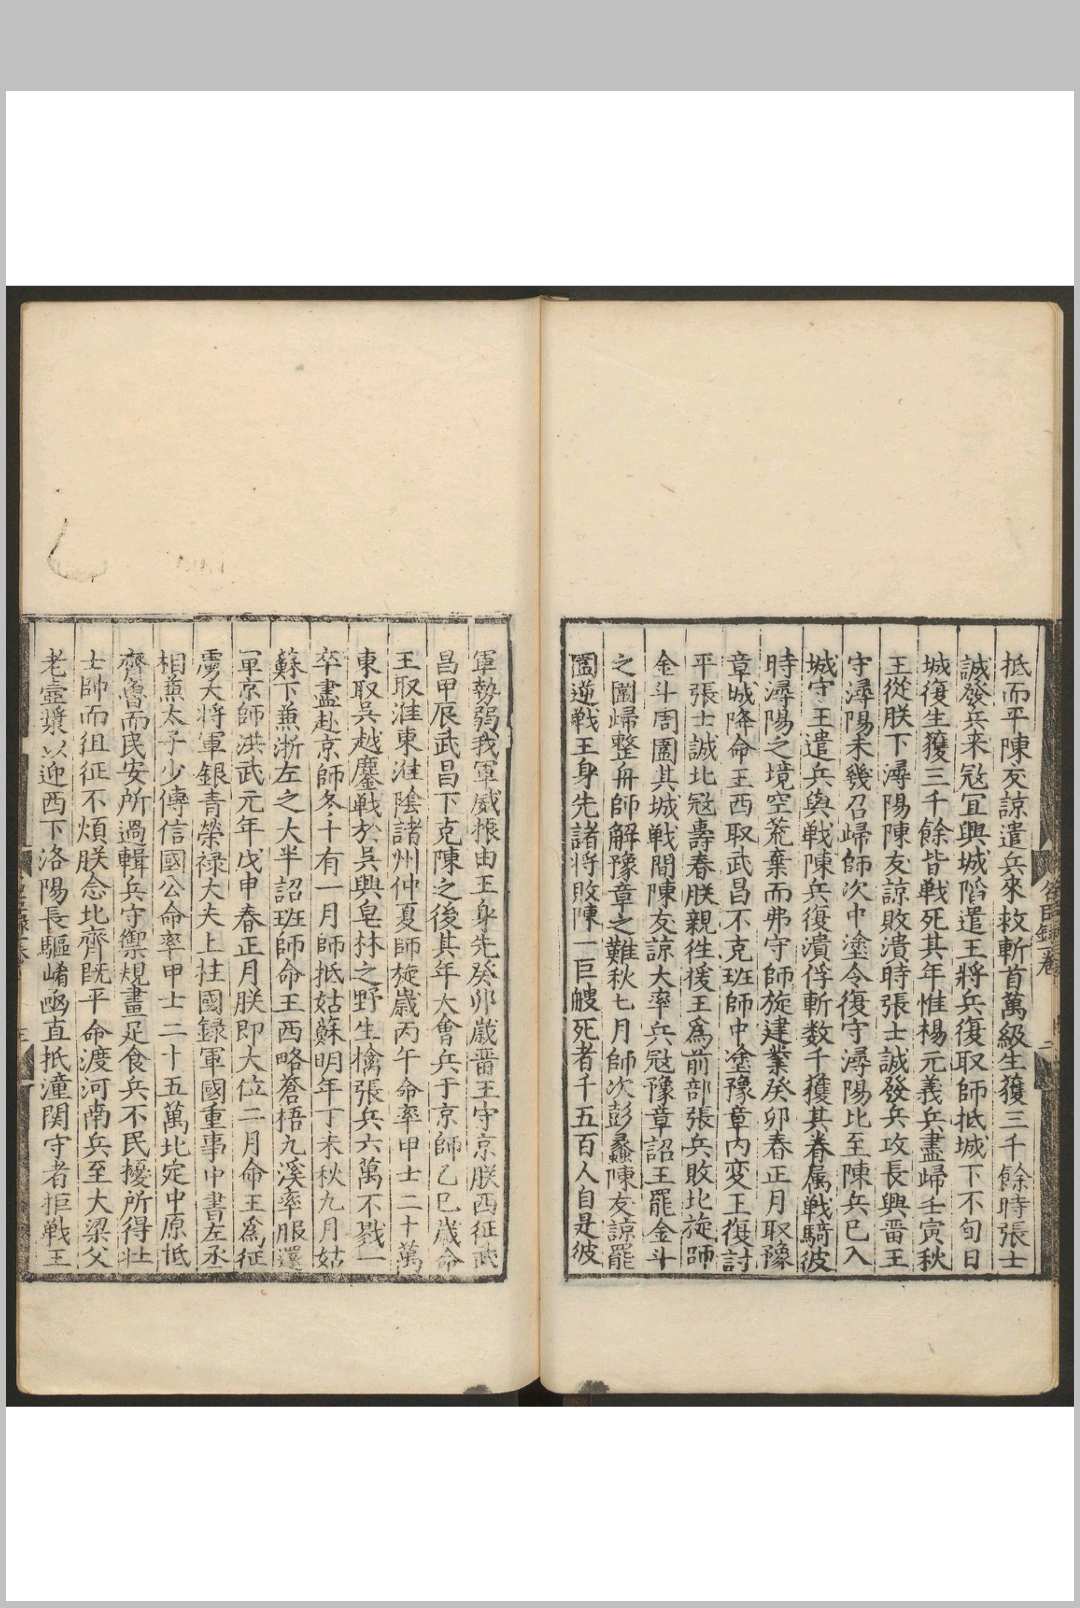 抵而平陳友諒遣兵來救斬首萬級生獲三千餘時張士
誠發兵来冦冝興城䧟遣王將兵復取師抵城下不旬日
城復生獲三千餘皆戦死其年惟楊元義兵盡歸壬寅秋
王從朕下潯陽陳友諒敗潰時張士誠發兵攻長興畱王
守潯陽未幾召歸師次中塗令復守潯陽比至陳兵已入
城守王遣兵與戦陳兵復潰俘斬数千獲其眷属戦騎彼
時潯陽之境空荒棄而弗守師旋建業癸卯春正月取豫
章城降命王西取武昌不克班師中塗豫章内変王復討
平張士誠北冦壽春朕親徃援王爲前部張兵敗北旋師
金斗周圍其城戦間陳友諒大率兵冦豫章詔王罷金斗
之圍歸整舟師解豫章之難秋七月師次彭蠡陳友諒罷
圍逆戦王身先諸將敗陳一巨艘死者千五百人自是彼
軍勢弱我軍威振由王身先癸卯歲畱王守京朕西征武
昌甲辰武昌下克陳之後其年大會兵于京師乙巳歲命
王取淮東淮隂諸州仲夏師旋歲丙午命率甲士二十萬
東取吳越鏖戦於吳興皂林之野生擒張兵六萬不戮一
卒盡赴京師冬十有一月師抵姑蘇明年丁未秋九月姑
蘇下兼浙左之大半詔班師命王西略蒼梧九溪率服還
軍京師洪武元年戊申春正月朕即大位二月命王爲征
虜大將軍銀青榮禄大夫上柱國録軍國重事中書左丞
相兼太子少傅信國公命率甲士二十五萬北定中原抵
齊魯而民安所過輯兵守禦規畫足食兵不民擾所得壮
士帥而徂征不煩朕念北齊既平命渡河南兵至大梁父
老壺漿以迎西下洛陽長驅崤凾直抵潼関守者拒戦王